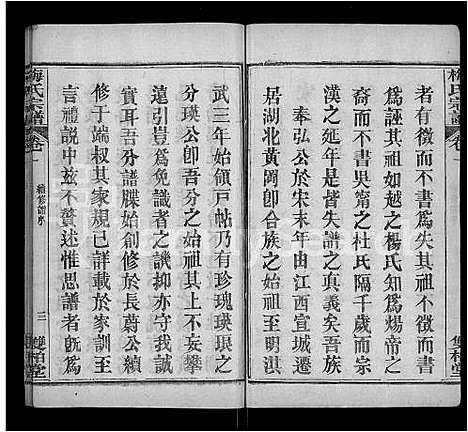 梅氏宗譜
卷一
雙柏堂
者有徵而不書為失其祖不徵而書
為誣其祖如越之楊氏知為煬帝之
裔而不書吳甯之杜氏隔千歲而宗
漢之延年是皆失譜之真義矣吾族
奉弘公於宋末年由江西宣城遷
居湖北黃岡即合族之始祖至明淇
武三年始領戶帖乃有珍瑰瑛琅之
分瑛公即分之始祖其上不妄攀
遠引豈為免識者之譏抑亦守我
實耳吾分譜牒始創修於長蔚公續
修於端叔其家規已詳載於家訓至
言禮說中茲不贅述惟思譜者既為
梅氏宗譜
卷一
續修譜序
三
雙柏堂